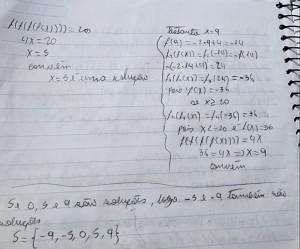 f(f(f(f(x))))=20
4x=20
x=5
convém
x=5 é uma solução
Testante x=9
f(9) = -2·9+4 = -14
f(f(x)) = f(-14) = -f(14)
-(-2·14+4) = 24
f(f(x)) = f(24) = -36
pois f(x) = -36
se x≥20
f(f(x)) = f(-36) = 36
pois x≤-20 é f(x)=36
f(f(f(f(x)))) = 4x
36=4x⇒x=9
convém
Se 0, 5 e 9 são soluções, logo -5 e -9 também são
soluções
S={-9,-5,0,5,9}